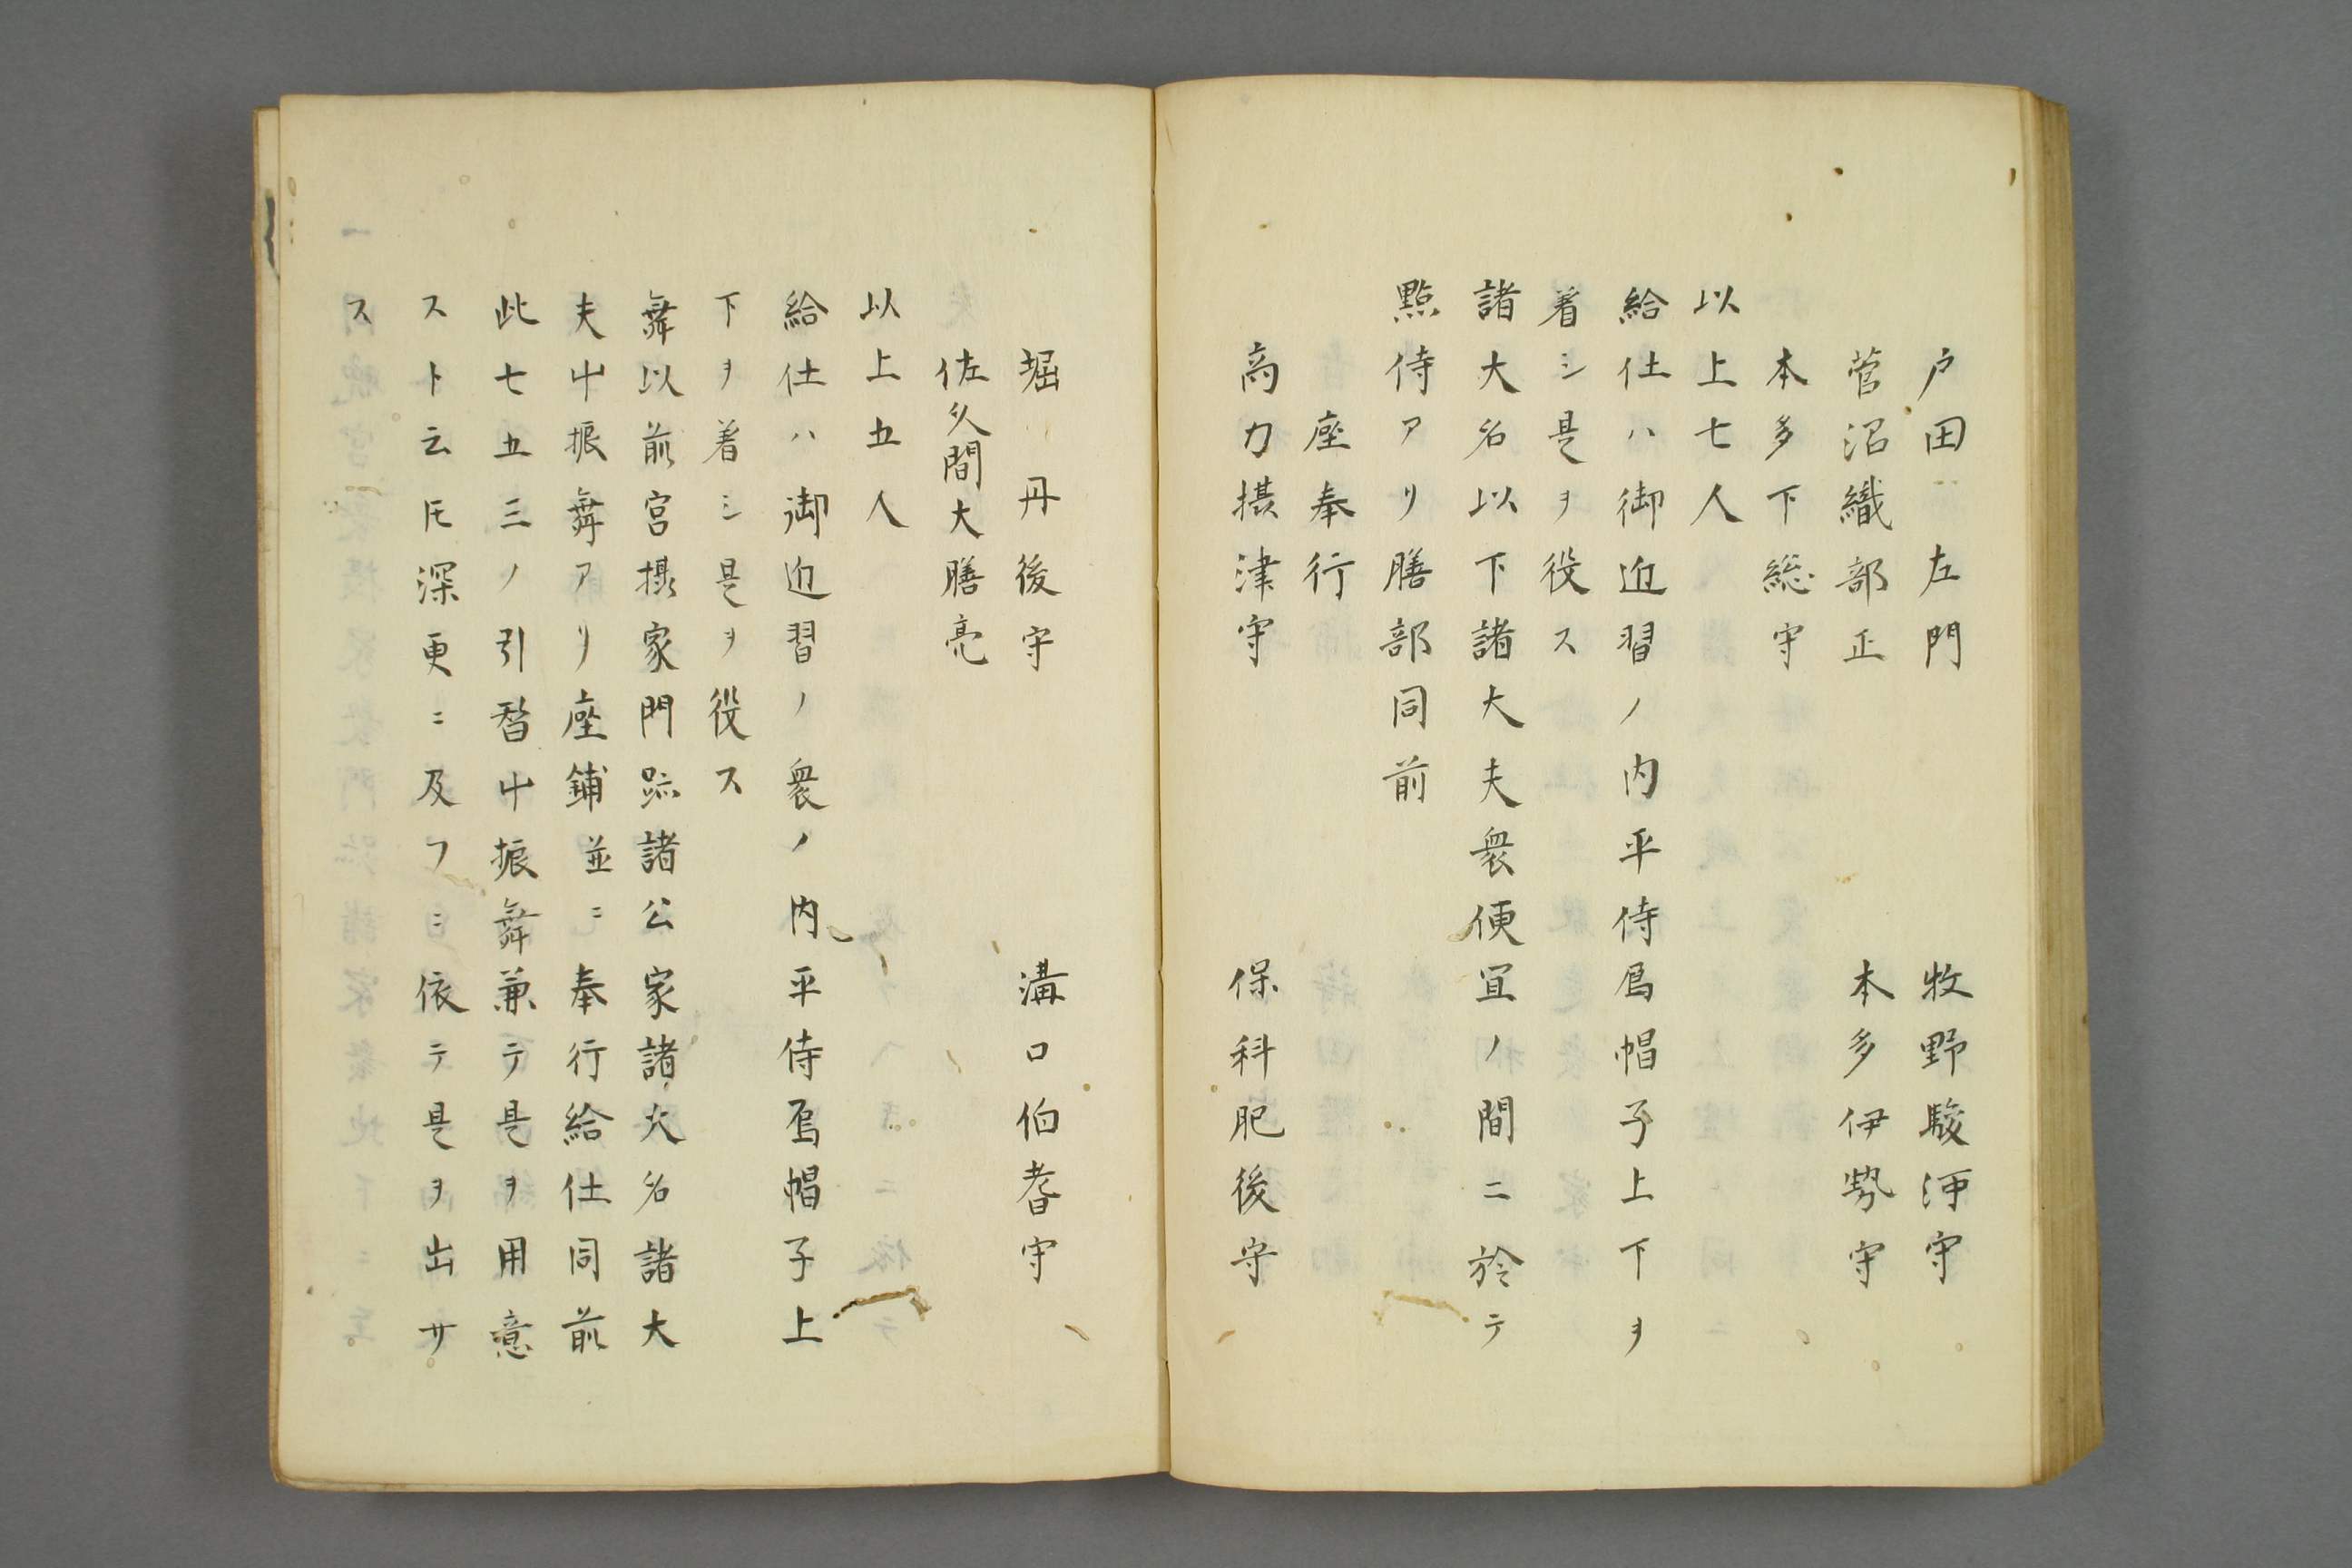 戸田　左門　牧野駿河守
菅沼織部正　本多伊勢守
本多下総守
以上七人
給仕ハ御近習ノ内平侍烏帽子上下ヲ
着シ是ヲ役ス
諸大名以下諸大夫衆便宜ノ間ニ於テ
點侍アリ膳部同前
座奉行
高力摂津守　保科肥後守
堀　丹後守　溝口伯耆守
佐久間大膳亮
以上五人
給仕ハ御近習ノ衆ノ内平侍烏帽子上
下ヲ着シ是ヲ役ス
舞以前宮摂家門跡諸公家諸大名諸大
夫中振舞アリ座鋪並ニ奉行給仕同前
此七五三ノ引替中振舞兼テ是ヲ用意
スト云𪜈深更ニ及フニ依テ是ヲ出サ
ス